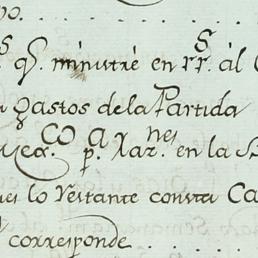 qs. minutré en rrs. ál
gastos de la Partida
pa. Xarnes en la
lo restante consta Ca
corresponde